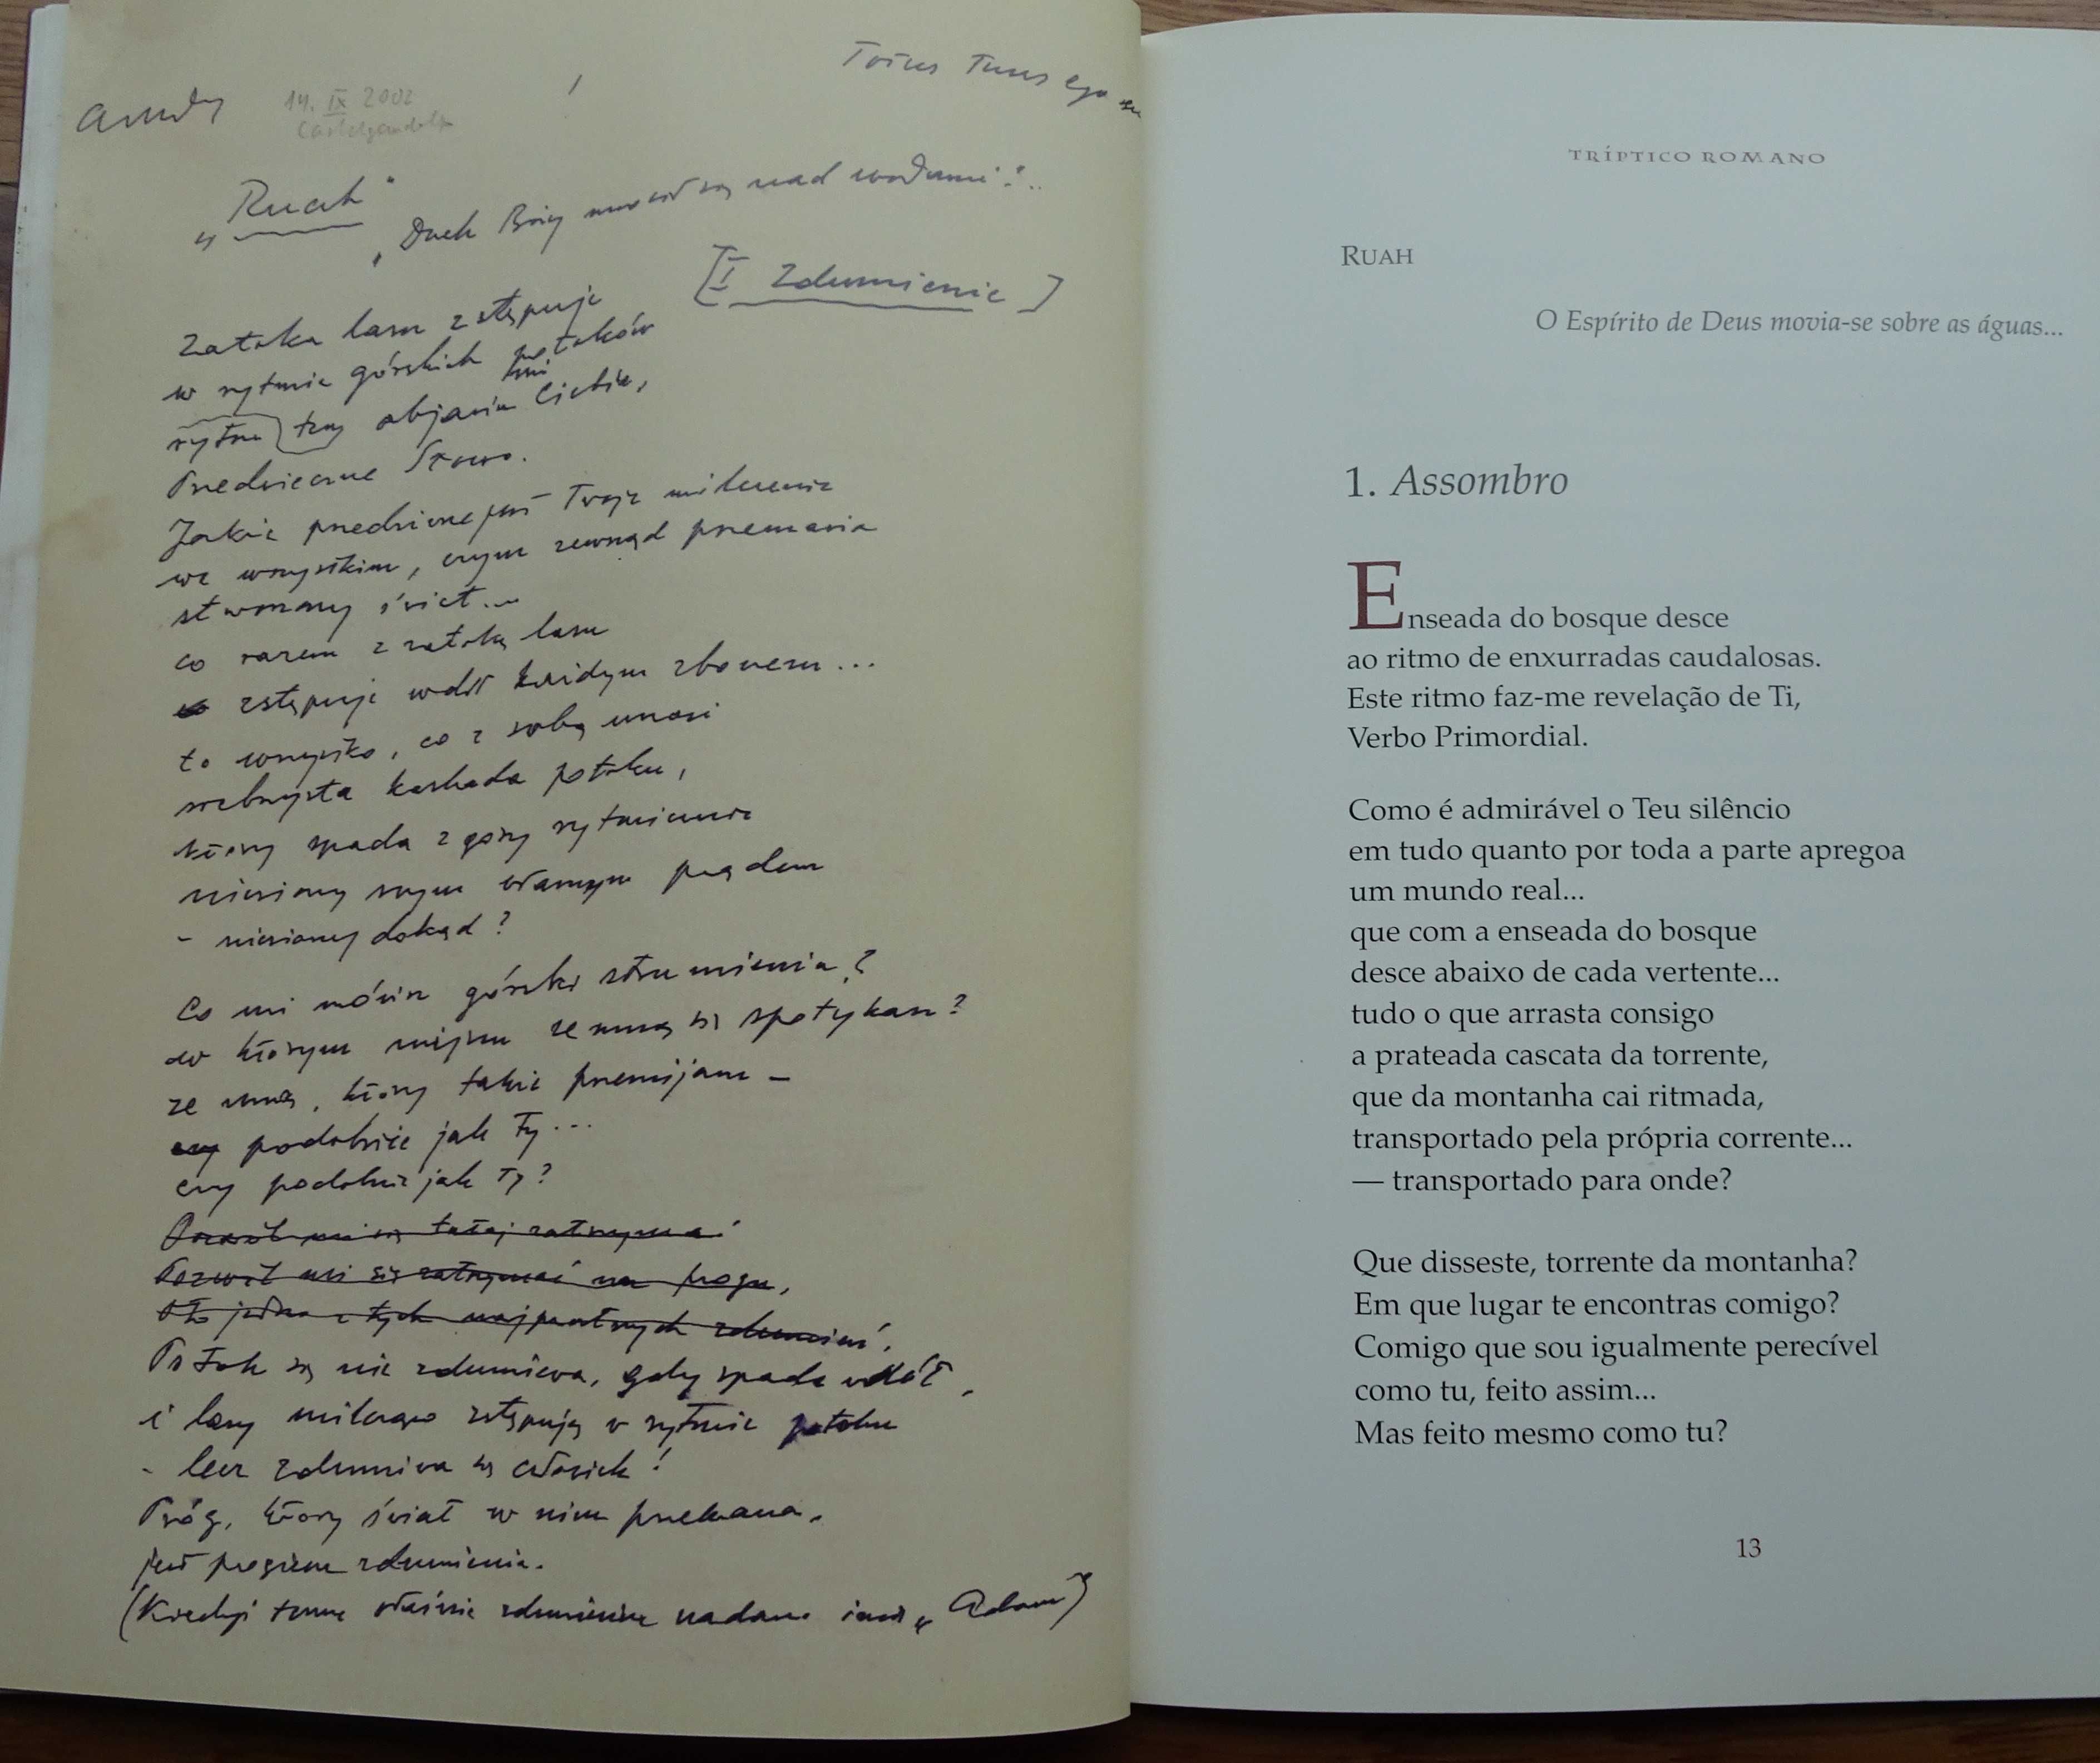 14. IX 2002
Castelgandolfo
Totus Tuus ego
„Ruah"
„Duch Boży unosił się nad wodami"...
[I Zdumienie]
Zatoka lasu zstępuje
w rytmie górskich potoków
rytm ten objawia Ciebie,
Przedwieczne Słowo.
Jakie przedziwne jest Twoje milczenie
we wszystkim, czym zewsząd przemawia
stworzony świat...
co razem z zatoką lasu
zstępuje w dół każdym zboczem...
to wszystko, co z sobą unosi
srebrzysta kaskada potoku,
który spada z góry rytmicznie
niesiony swym własnym prądem
- niesiony dokąd?
Co mi mówisz górski strumieniu?
w którym miejscu ze mną się spotykasz?
ze mną, który także przemijam -
podobnie jak ty...
czy podobnie jak ty?
Pozwól mi się tutaj zatrzymać
Pozwól mi się zatrzymać na progu,
Oto jedno z tych najprostszych zdumień.
Potok się nie zdumiewa, gdy spada w dół,
i lasy milcząco zstępują w rytmie potoku
- lecz zdumiewa się człowiek!
Próg, który świat w nim przekracza,
jest progiem zdumienia.
(Kiedyś temu właśnie zdumieniu nadano imię „Adam")
TRÍPTICO ROMANO
RUAH
O Espírito de Deus movia-se sobre as águas...
1. Assombro
Enseada do bosque desce
ao ritmo de enxurradas caudalosas.
Este ritmo faz-me revelação de Ti,
Verbo Primordial.
Como é admirável o Teu silêncio
em tudo quanto por toda a parte apregoa
um mundo real...
que com a enseada do bosque
desce abaixo de cada vertente...
tudo o que arrasta consigo
a prateada cascata da torrente,
que da montanha cai ritmada,
transportado pela própria corrente...
— transportado para onde?
Que disseste, torrente da montanha?
Em que lugar te encontras comigo?
Comigo que sou igualmente perecível
como tu, feito assim...
Mas feito mesmo como tu?
13